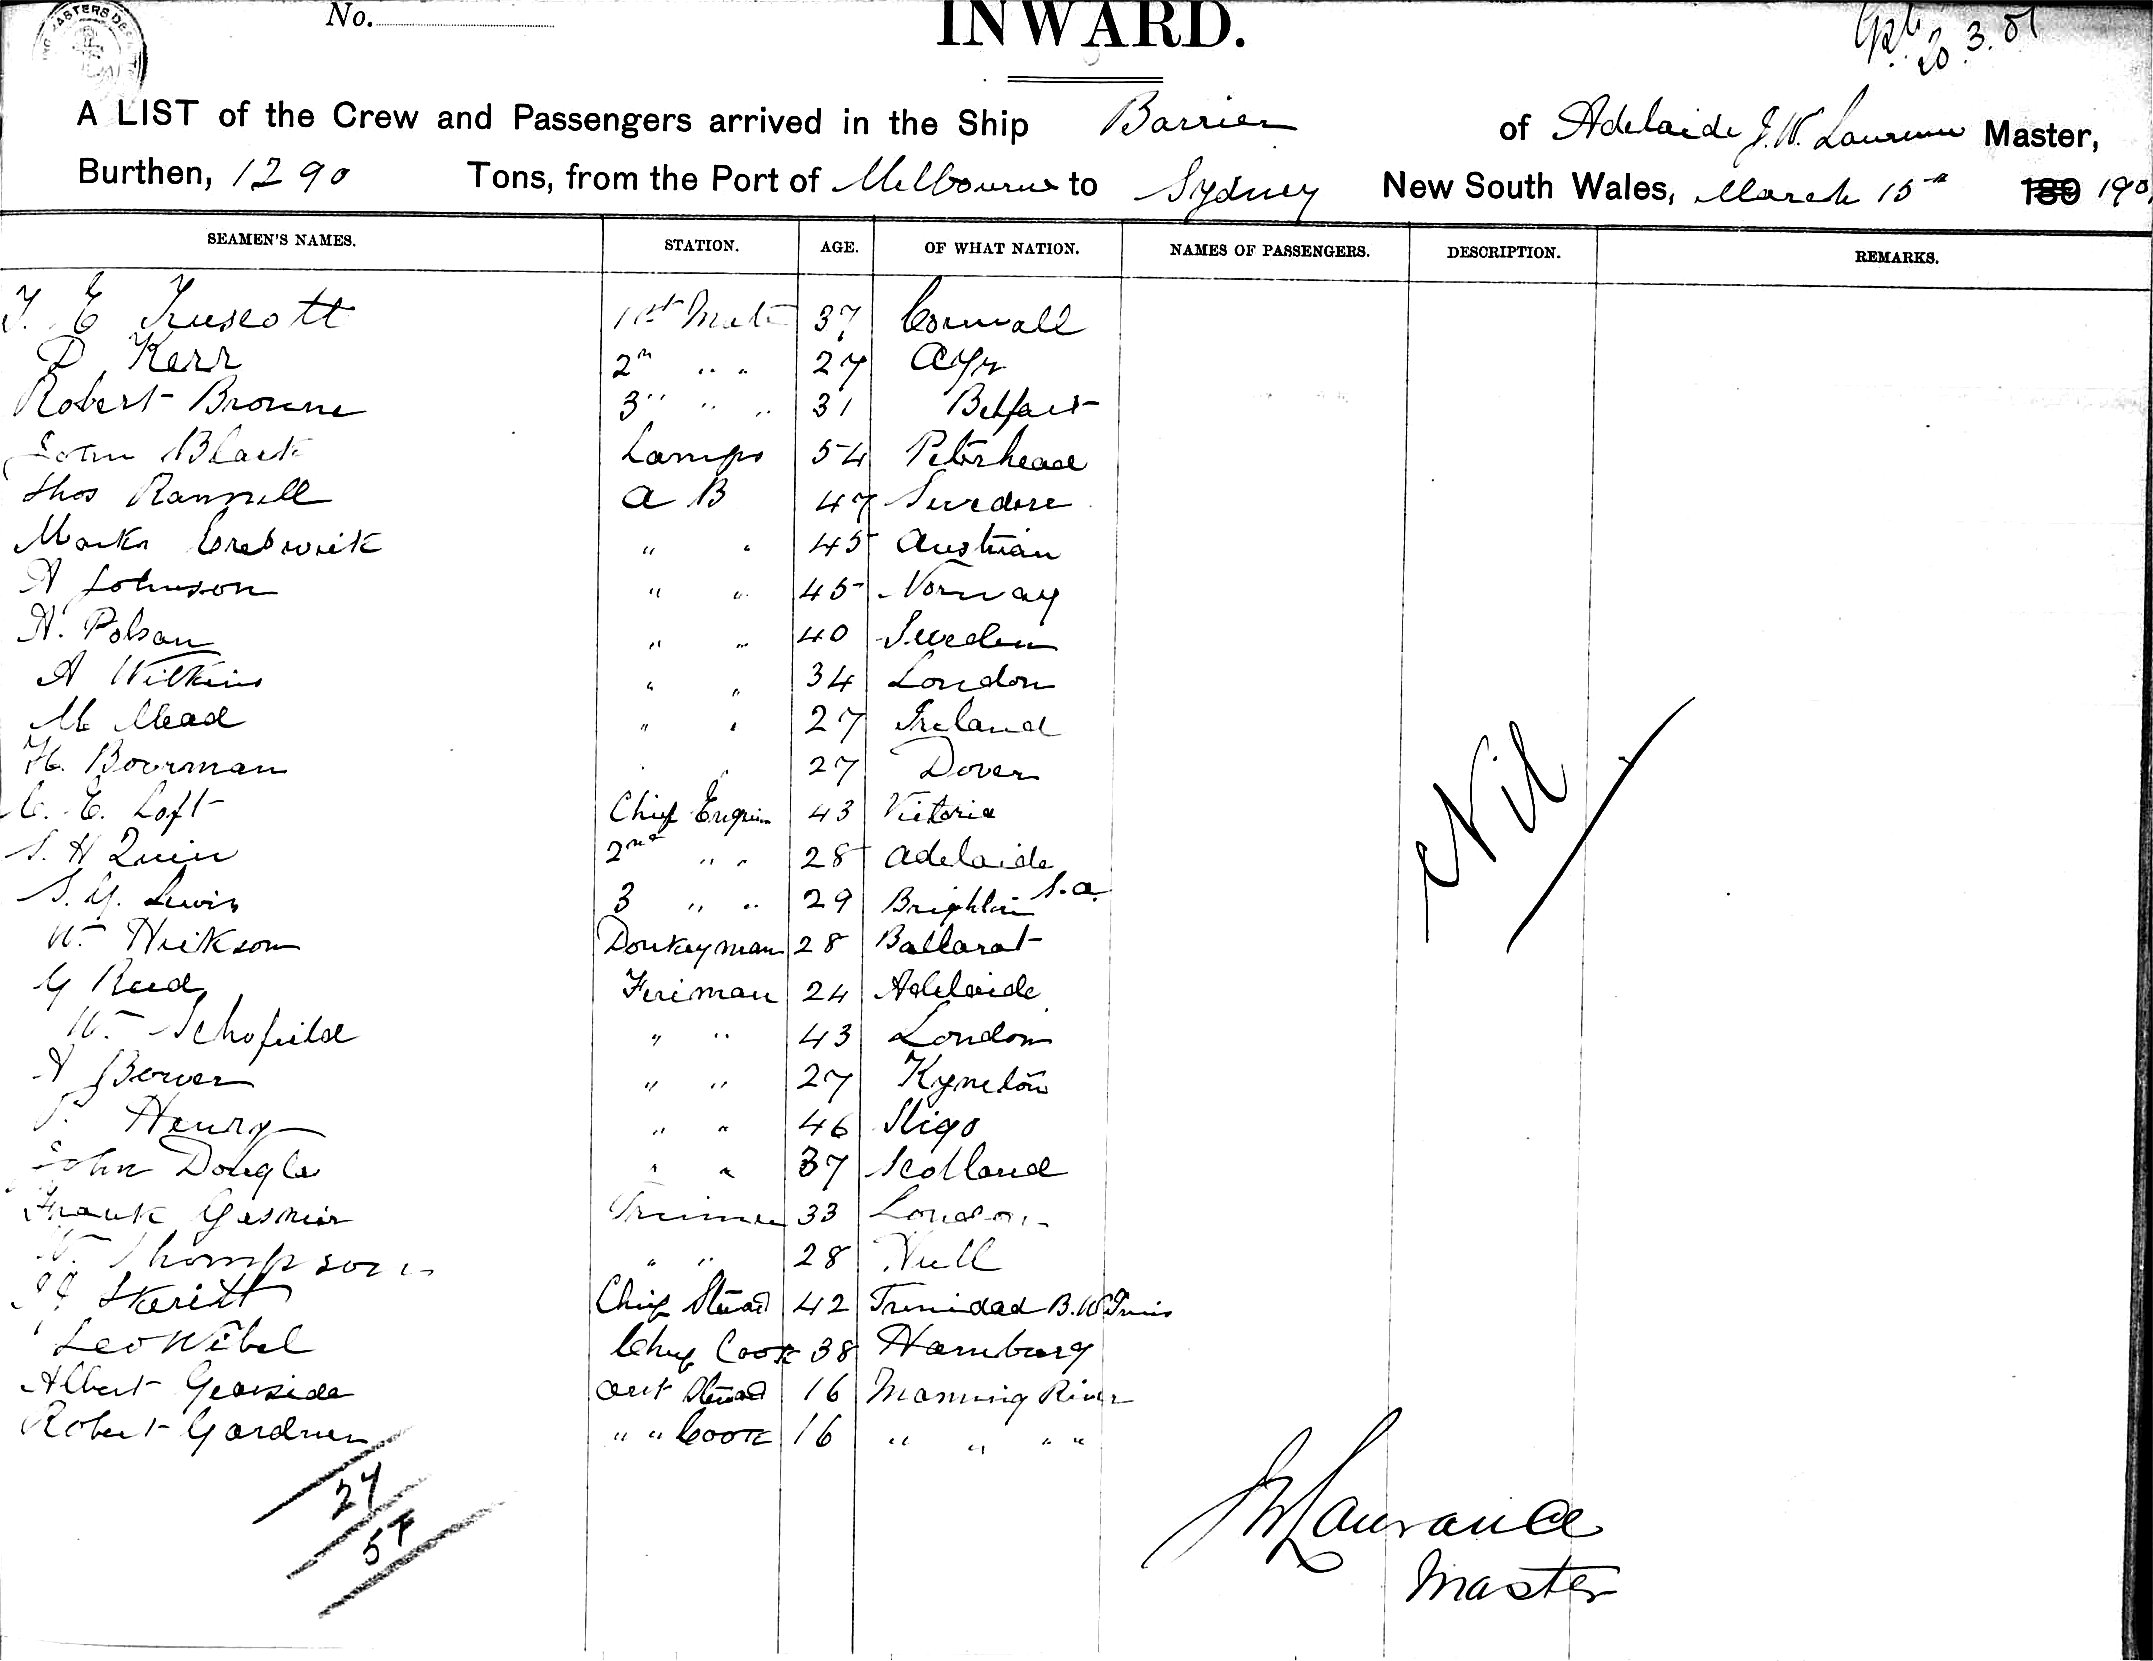 No.
INWARD.
20.3.01
A LIST of the Crew and Passengers arrived in the Ship Barrier of Adelaide J. W. Laurence Master,
Burthen, 1290 Tons, from the Port of Melbourne to Sydney New South Wales, March 15th 189 190
SEAMEN'S NAMES. STATION. AGE. OF WHAT NATION. NAMES OF PASSENGERS. DESCRIPTION. REMARKS.
T. E Truscott 1st Mate 37 Cornwall
D Kerr 2n " " 27 Ayr
Robert Browne 3" " " 31 Belfast
John Black Lamps 54 Peterhead
Thos Rannell A B 47
Marko " " 45 Austrian
A Johnson " " 45 Norway
A. Polson " " 40 Sweden
A Wilkins " " 34 London
M Mead " " 27 Ireland
H. Boorman " " 27 Dover
C. E. Loft Chief Engin 43 Victoria
S. H Quin 2nd " " 28 Adelaide
S. G. Lewis 3 " " 29 Brighton S.A.
W. Hickson Donkeyman 28 Ballarat
G Reed Firiman 24 Adelaide
W. Schofield " " 43 London
A Bower " " 27 Kyneton
Henry " " 46 Sligo
John Dougla " " 37 Scotland
Frank Trimmer 33 London
W. Thompson " " 28 Hull
Skeritt Chief Steward 42 Trinidad B. W
Leo Wibel Chief Cook 38 Hamburg
Albert Gearside asst Steward 16 Manning River
Robert Gardner " " Cook 16 " " " "
Nil
27
57
J W Laurance
Master